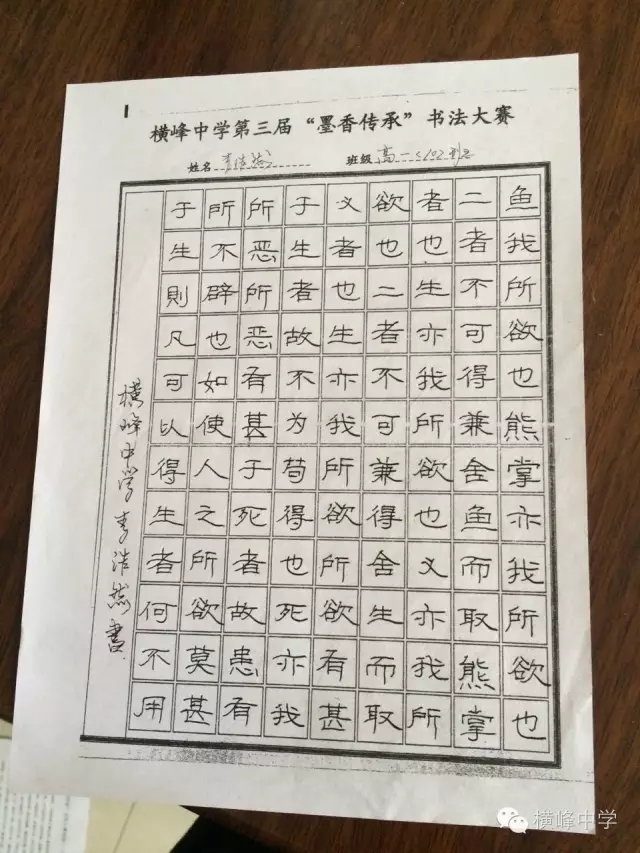 横峰中学第三届“墨香传承”书法大赛
姓名 李浩然 班级 高一
鱼我所欲也熊掌亦我所欲也
二者不可得兼舍鱼而取熊掌
者也生亦我所欲也义亦我所
欲也二者不可兼得舍生而取
义者也生亦我所欲所欲有甚
于生者故不为苟得也死亦我
所恶所恶有甚于死者故患有
所不辟也如使人之所欲莫甚
于生則凡可以得生者何不用
横峰中学李浩然書
横峰中学